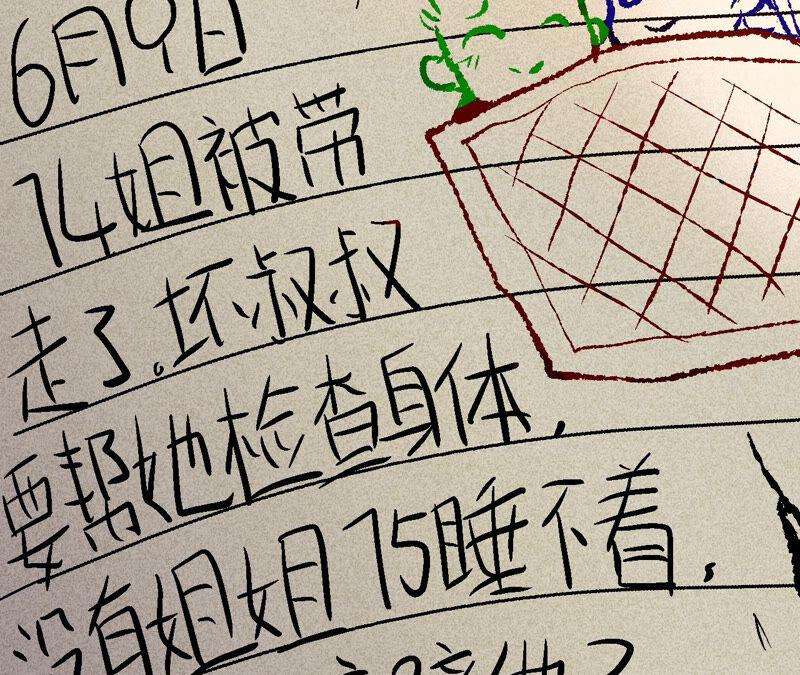 6月9日
14姐被带
走了。坏叔叔
要帮她检查身体,
没有姐姐15睡不着,